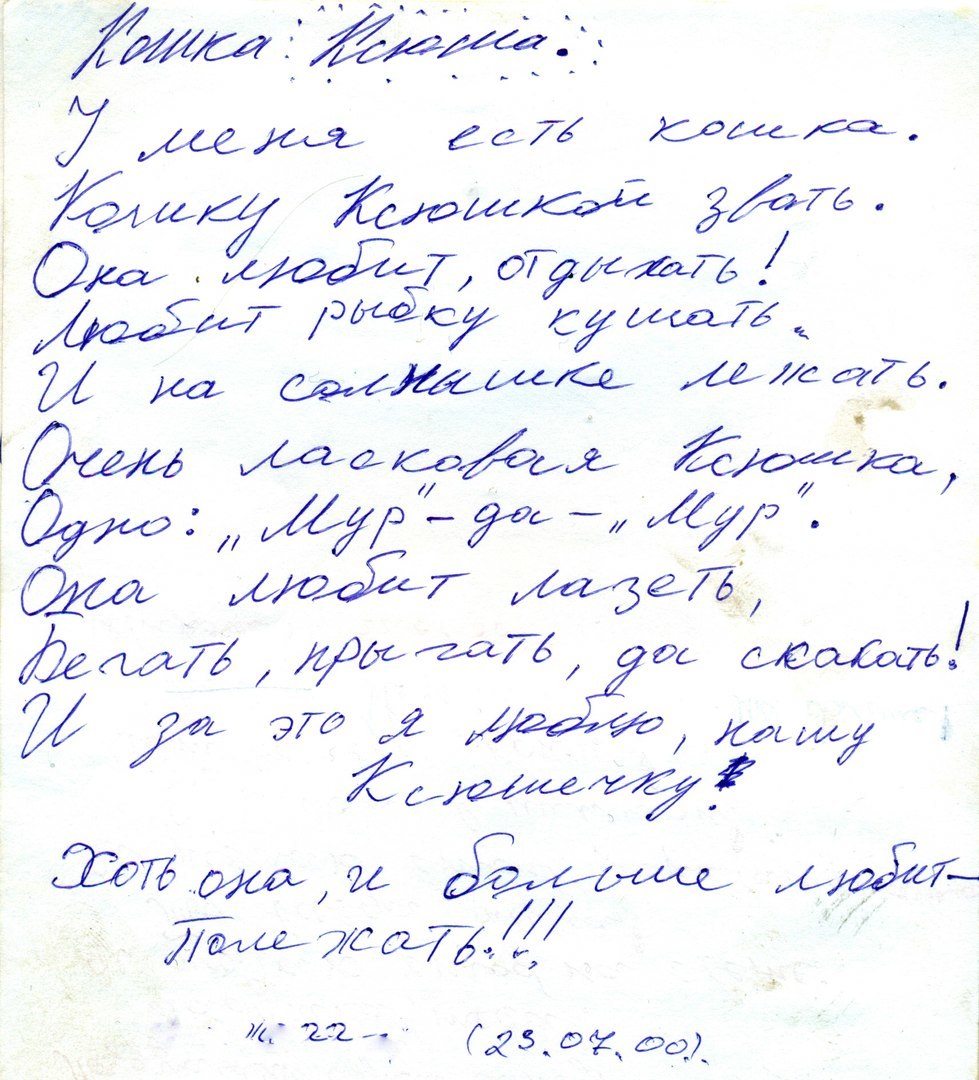 Кошка Ксюша.
У меня есть кошка.
Кошку Ксюшкой звать.
Она любит, отдыхать!
Любит рыбку кушать
И на солнышке лежать.
Очень ласковая Ксюшка,
Одно: „Мур" – да – „Мур".
Она любит лазеть,
Бегать, прыгать, да скакать!
И за это я люблю, нашу
Ксюшечку!
Хоть она, и больше любит –
Полежать!!!
(23.07.00).